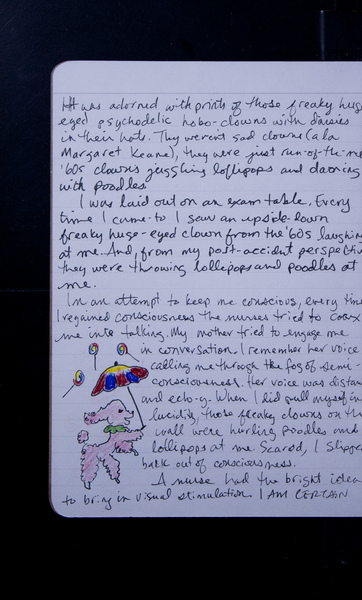 It was adorned with prints of those freaky huge
eyed psychedelic hobo-clowns with daisies
in their hats. They weren't sad clowns (a la
Margaret Keane), they were just run-of-the-mi
'60s clowns juggling lollipops and dancing
with poodles.
I was laid out on an exam table. Every
time I came to I saw an upside-down
freaky huge-eyed clown from the '60s laughing
at me. And, from my post-accident perspectiv
they were throwing lollipops and poodles at
me.
In an attempt to keep me conscious, every time
I regained consciousness the nurses tried to coax
me into talking. My mother tried to engage me
in conversation. I remember her voice
calling me through the fog of semi-
consciousness. Her voice was distan
and echo-y. When I did pull myself in
lucidity, those freaky clowns on the
wall were hurling poodles and
lollipops at me. Scared, I slippe
back out of consciousness.
A nurse had the bright idea
to bring in visual stimulation. I AM CERTAIN